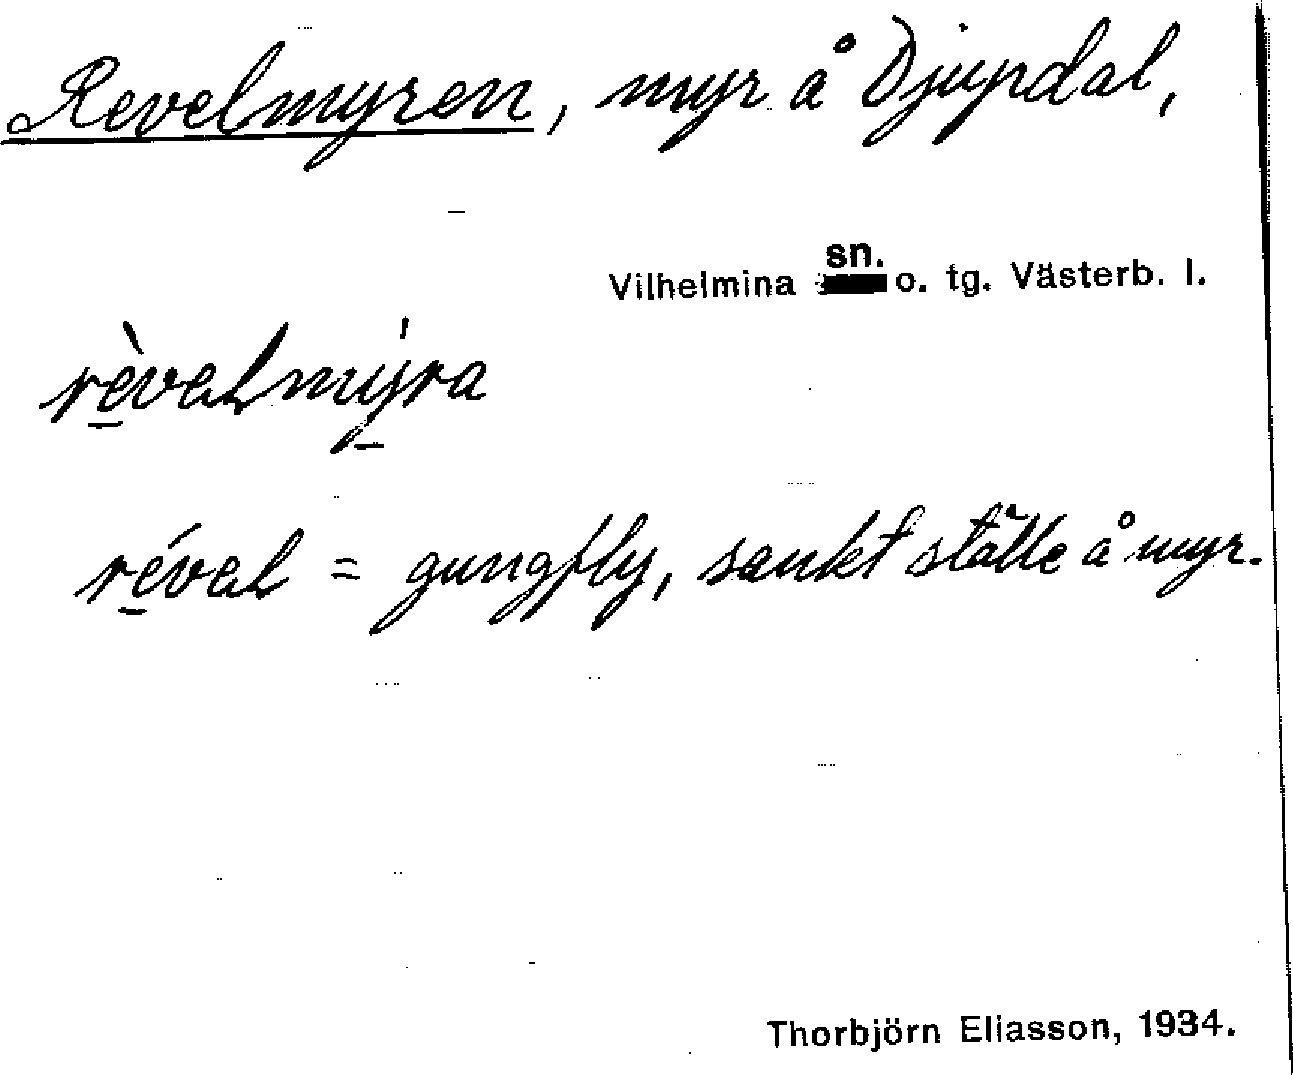 Revelmyren, myr å Djupdal,
Vilhelmina sn. o. tg. Västerb. l.
rèvelmýra
rével = gungfly, sankt ställe å myr.
Thorbjörn Eliasson, 1934.